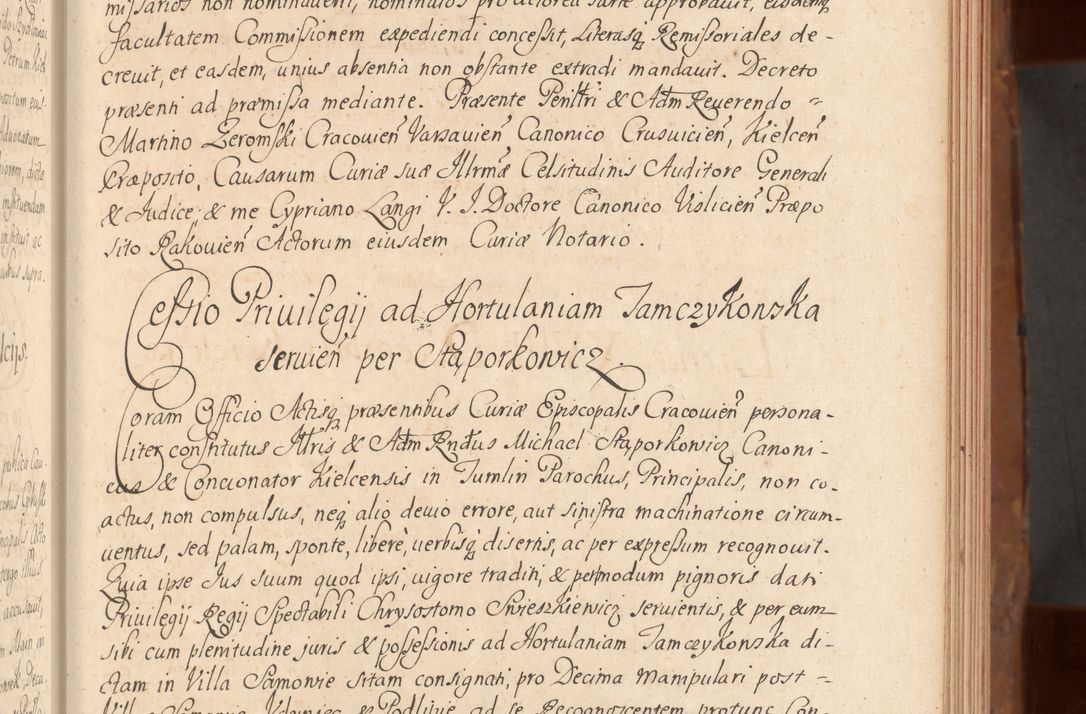 missarios non nominaverit, nominatos pro Actorea Parte approbavit, eisdemq
facultatem Commissionem expediendi concessit, Literasq Remissoriales de-
crevit, et easdem, unius absentia non obstante extradi mandavit. Decreto
præsenti ad præmissa mediante. Præsente Perilltri & Adm Reverendo =
Martino Żeromski Cracovien Varsavien Canonico Crusvicien, Kielcen
Præposito, Causarum Curiæ suæ Illrmæ Celsitudinis Auditore Generali
& Judice, & me Cypriano Langi V. J. Doctore Canonico Vislicien Præpo
sito Rakovien Actorum eiusdem Curiæ Notario.
Cessio Privilegij ad Hortulaniam Jamczykowska
servien per Stąporkowicz.
Coram Officio Actisq præsentibus Curiæ Episcopalis Cracovien persona-
liter constitutus Iltris & Adm Rndus Michael Stąporkowicz Canoni-
cus & Concionator Kielcensis in Tumlin Parochus, Principalis, non co-
actus, non compulsus, neq alio devio errore, aut sinistra machinatione circum-
ventus, sed palam, sponte, libere, verbisq disertis, ac per expressum recognovit.
Quia ipse Jus suum quod ipsi, vigore traditi, & per modum pignoris dati
Privilegij Regij Spectabili Chrysostomo Swieszkiewicz servientis, & per eum
sibi cum plenitudine juris & possessionis ad Hortulaniam Jamczykowska di-
ctam in Villa Samonie sitam consignati, pro Decima Manipulari post =
ad se Recognoscentem protunc Can-